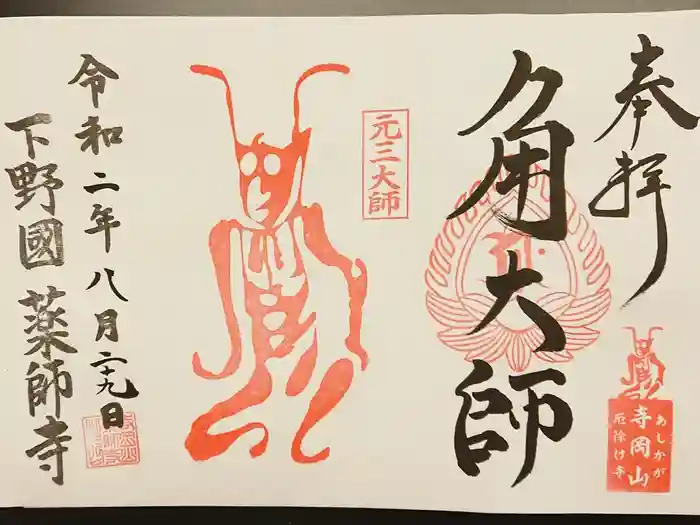 奉拝
角大師
元三大師
あしかが
寺岡山
厄除け寺
令和二年八月二十九日
下野國 薬師寺